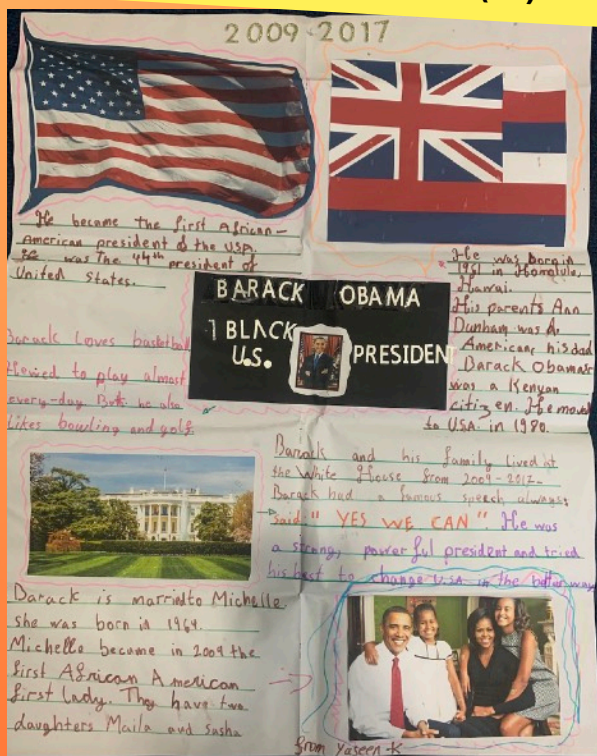 2009-2017
He became the first African-
American president of the USA.
He was the 44th president of
United States.
He was born in
1961 in Honolulu,
Hawai.
His parents Ann
Dunham was A
American, his dad
Barack Obama sr
was a Kenyan
citizen. He moved
to USA in 1980.
BARACK OBAMA
1 BLACK
U.S. PRESIDENT
Barack Loves basketball
He used to play almost
every-day But he also
likes bowling and golf.
Barack and his family lived at
the White House from 2009-2017-
Barack had a famous speech always
said "YES WE CAN". He was
a strong, powerful president and tried
his best to change U.S.A in the better way
Barack is marrid to Michelle
she was born is 1964.
Michelle became in 2009 the
first African American
first lady. They have two
daughters Maila and Sasha
from Yaseen-K